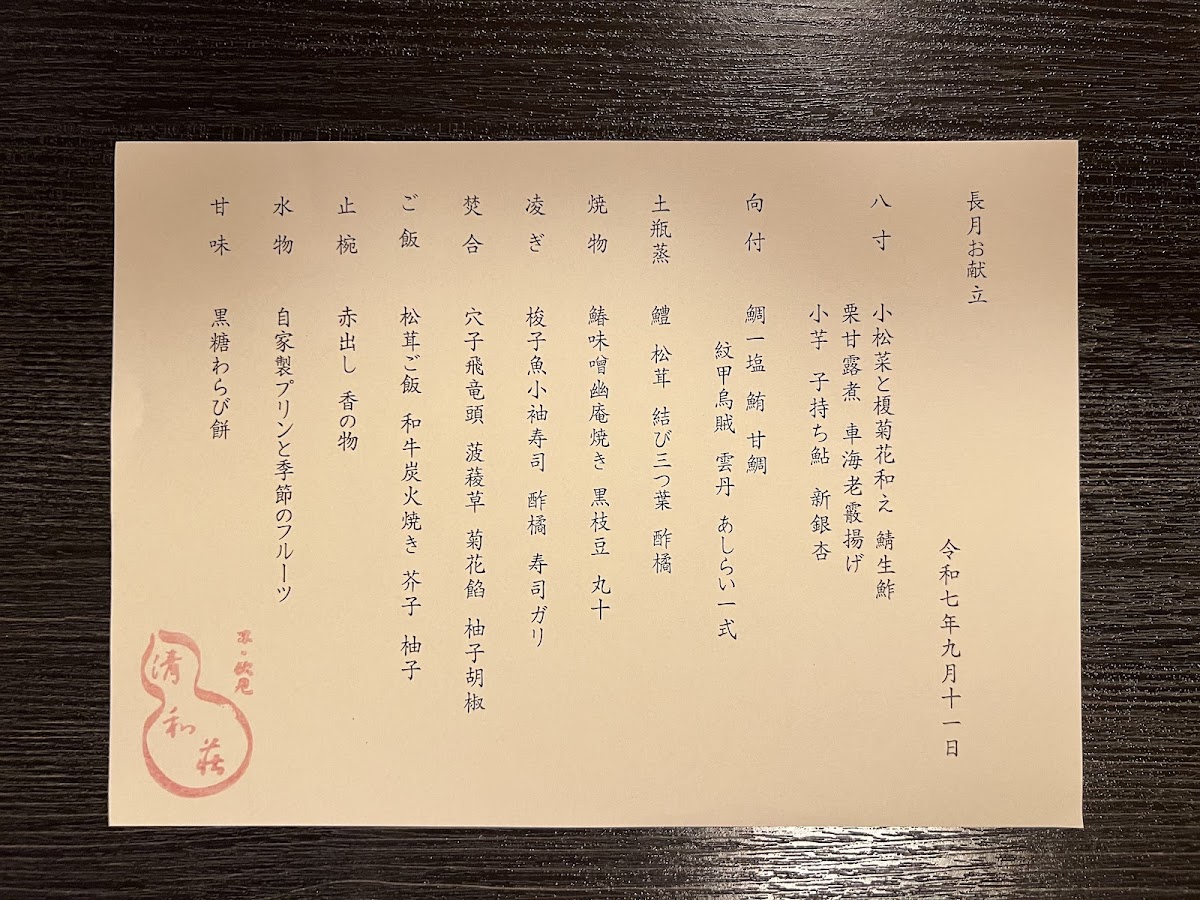 長月お献立
令和七年九月十一日
八寸 小松菜と榎菊花和え 鯖生鮓
栗甘露煮 車海老霰揚げ
小芋 子持ち鮎 新銀杏
向付 鯛一塩 鮪 甘鯛
紋甲烏賊 雲丹 あしらい一式
土瓶蒸 鱧 松茸 結び三つ葉 酢橘
焼物 鰆味噌幽庵焼き 黒枝豆 丸十
凌ぎ 梭子魚小袖寿司 酢橘 寿司ガリ
焚合 穴子飛竜頭 菠薐草 菊花餡 柚子胡椒
ご飯 松茸ご飯 和牛炭火焼き 芥子 柚子
止椀 赤出し 香の物
水物 自家製プリンと季節のフルーツ
甘味 黒糖わらび餅
清和荘